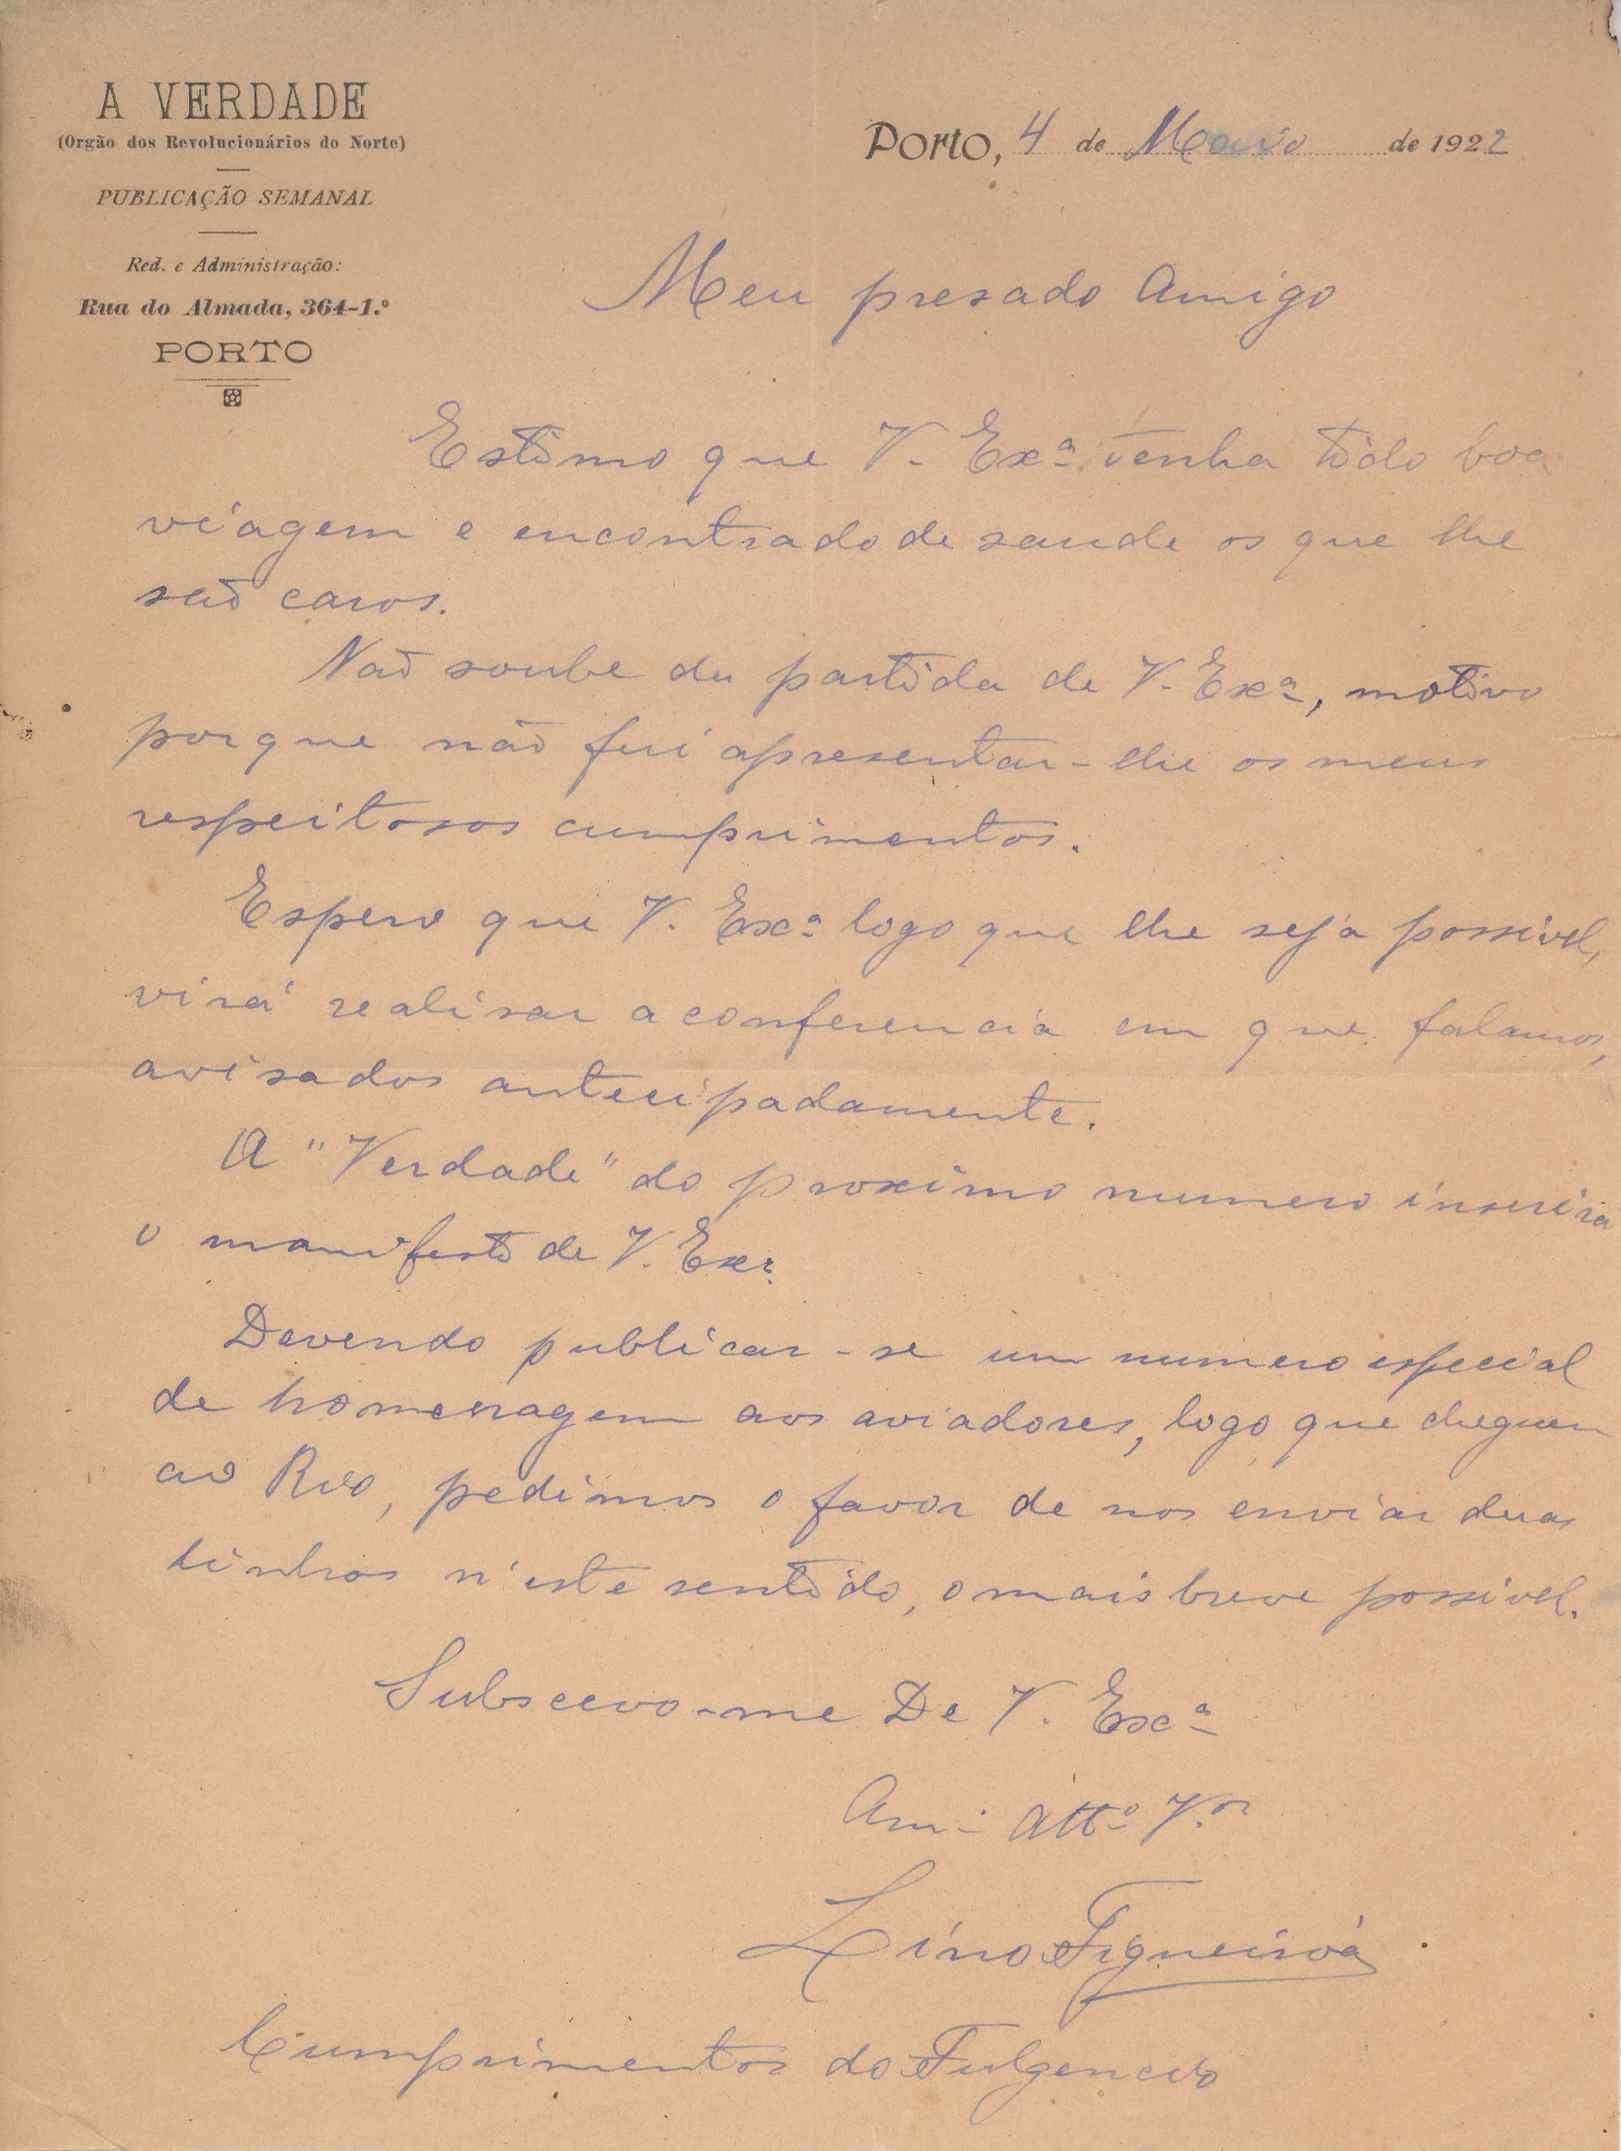 A VERDADE
(Orgão dos Revolucionários do Norte)
PUBLICAÇÃO SEMANAL
Red. e Administração:
Rua do Almada, 364-1.º
PORTO
Porto, 4 de de 1922
Meu presado Amigo
Estimo que V. Exª tenha tido boa
viagem e encontrado de saude os que lhe
saõ caros.
Naõ soube da partida de V. Exª, motivo
porque não fui apresentar-lhe os meus
respeitosos cumprimentos.
Espero que V. Exª logo que lhe seja possivel,
virá realisar a conferencia em que falamos,
avisados antecipadamente.
A "Verdade" do proximo numero inserirá
o manifesto de V. Exª.
Devendo publicar-se um numero especial
de homenagem aos aviadores, logo que cheguem
ao Rio, pedimos o favor de nos enviar duas
linhas n'este sentido, o mais breve possivel.
Subscevo-me De V. Exª
Am.º Attº V.or
Lino Figueirôa
Cumprimentos do Fulgencio